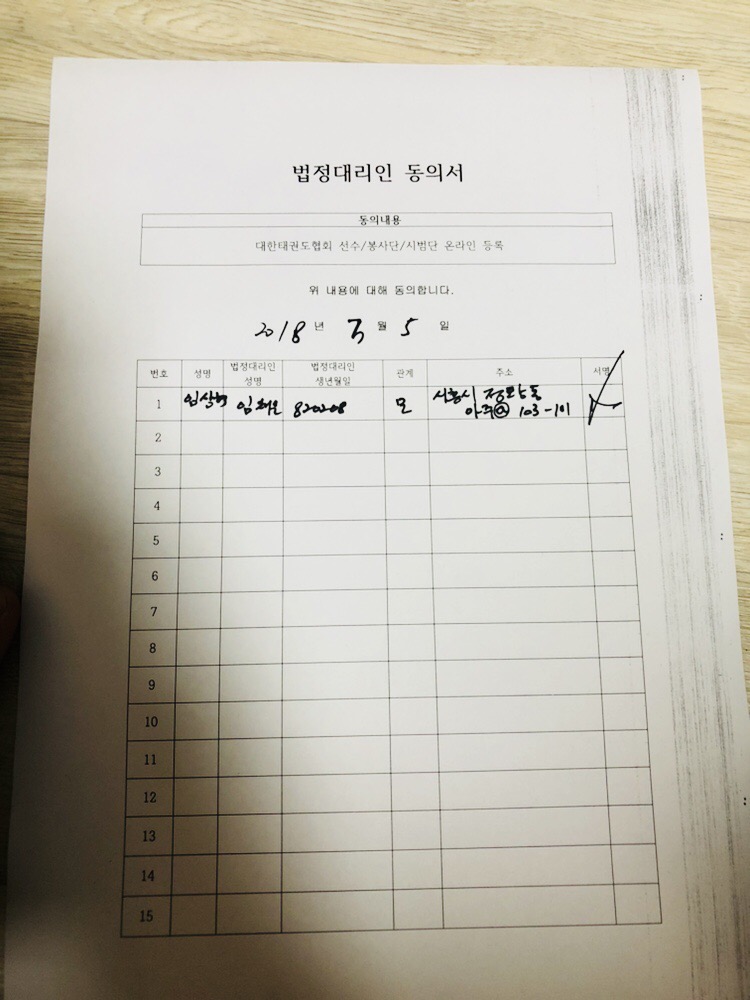 법정대리인 동의서
동의내용
대한태권도협회 선수/봉사단/시범단 온라인 등록
위 내용에 대해 동의합니다.
2018 년 3 월 5 일
번호 성명 법정대리인 성명 법정대리인 생년월일 관계 주소 서명
1 820208 모 시흥시 정왕동
아주@ 103-101
2
3
4
5
6
7
8
9
10
11
12
13
14
15